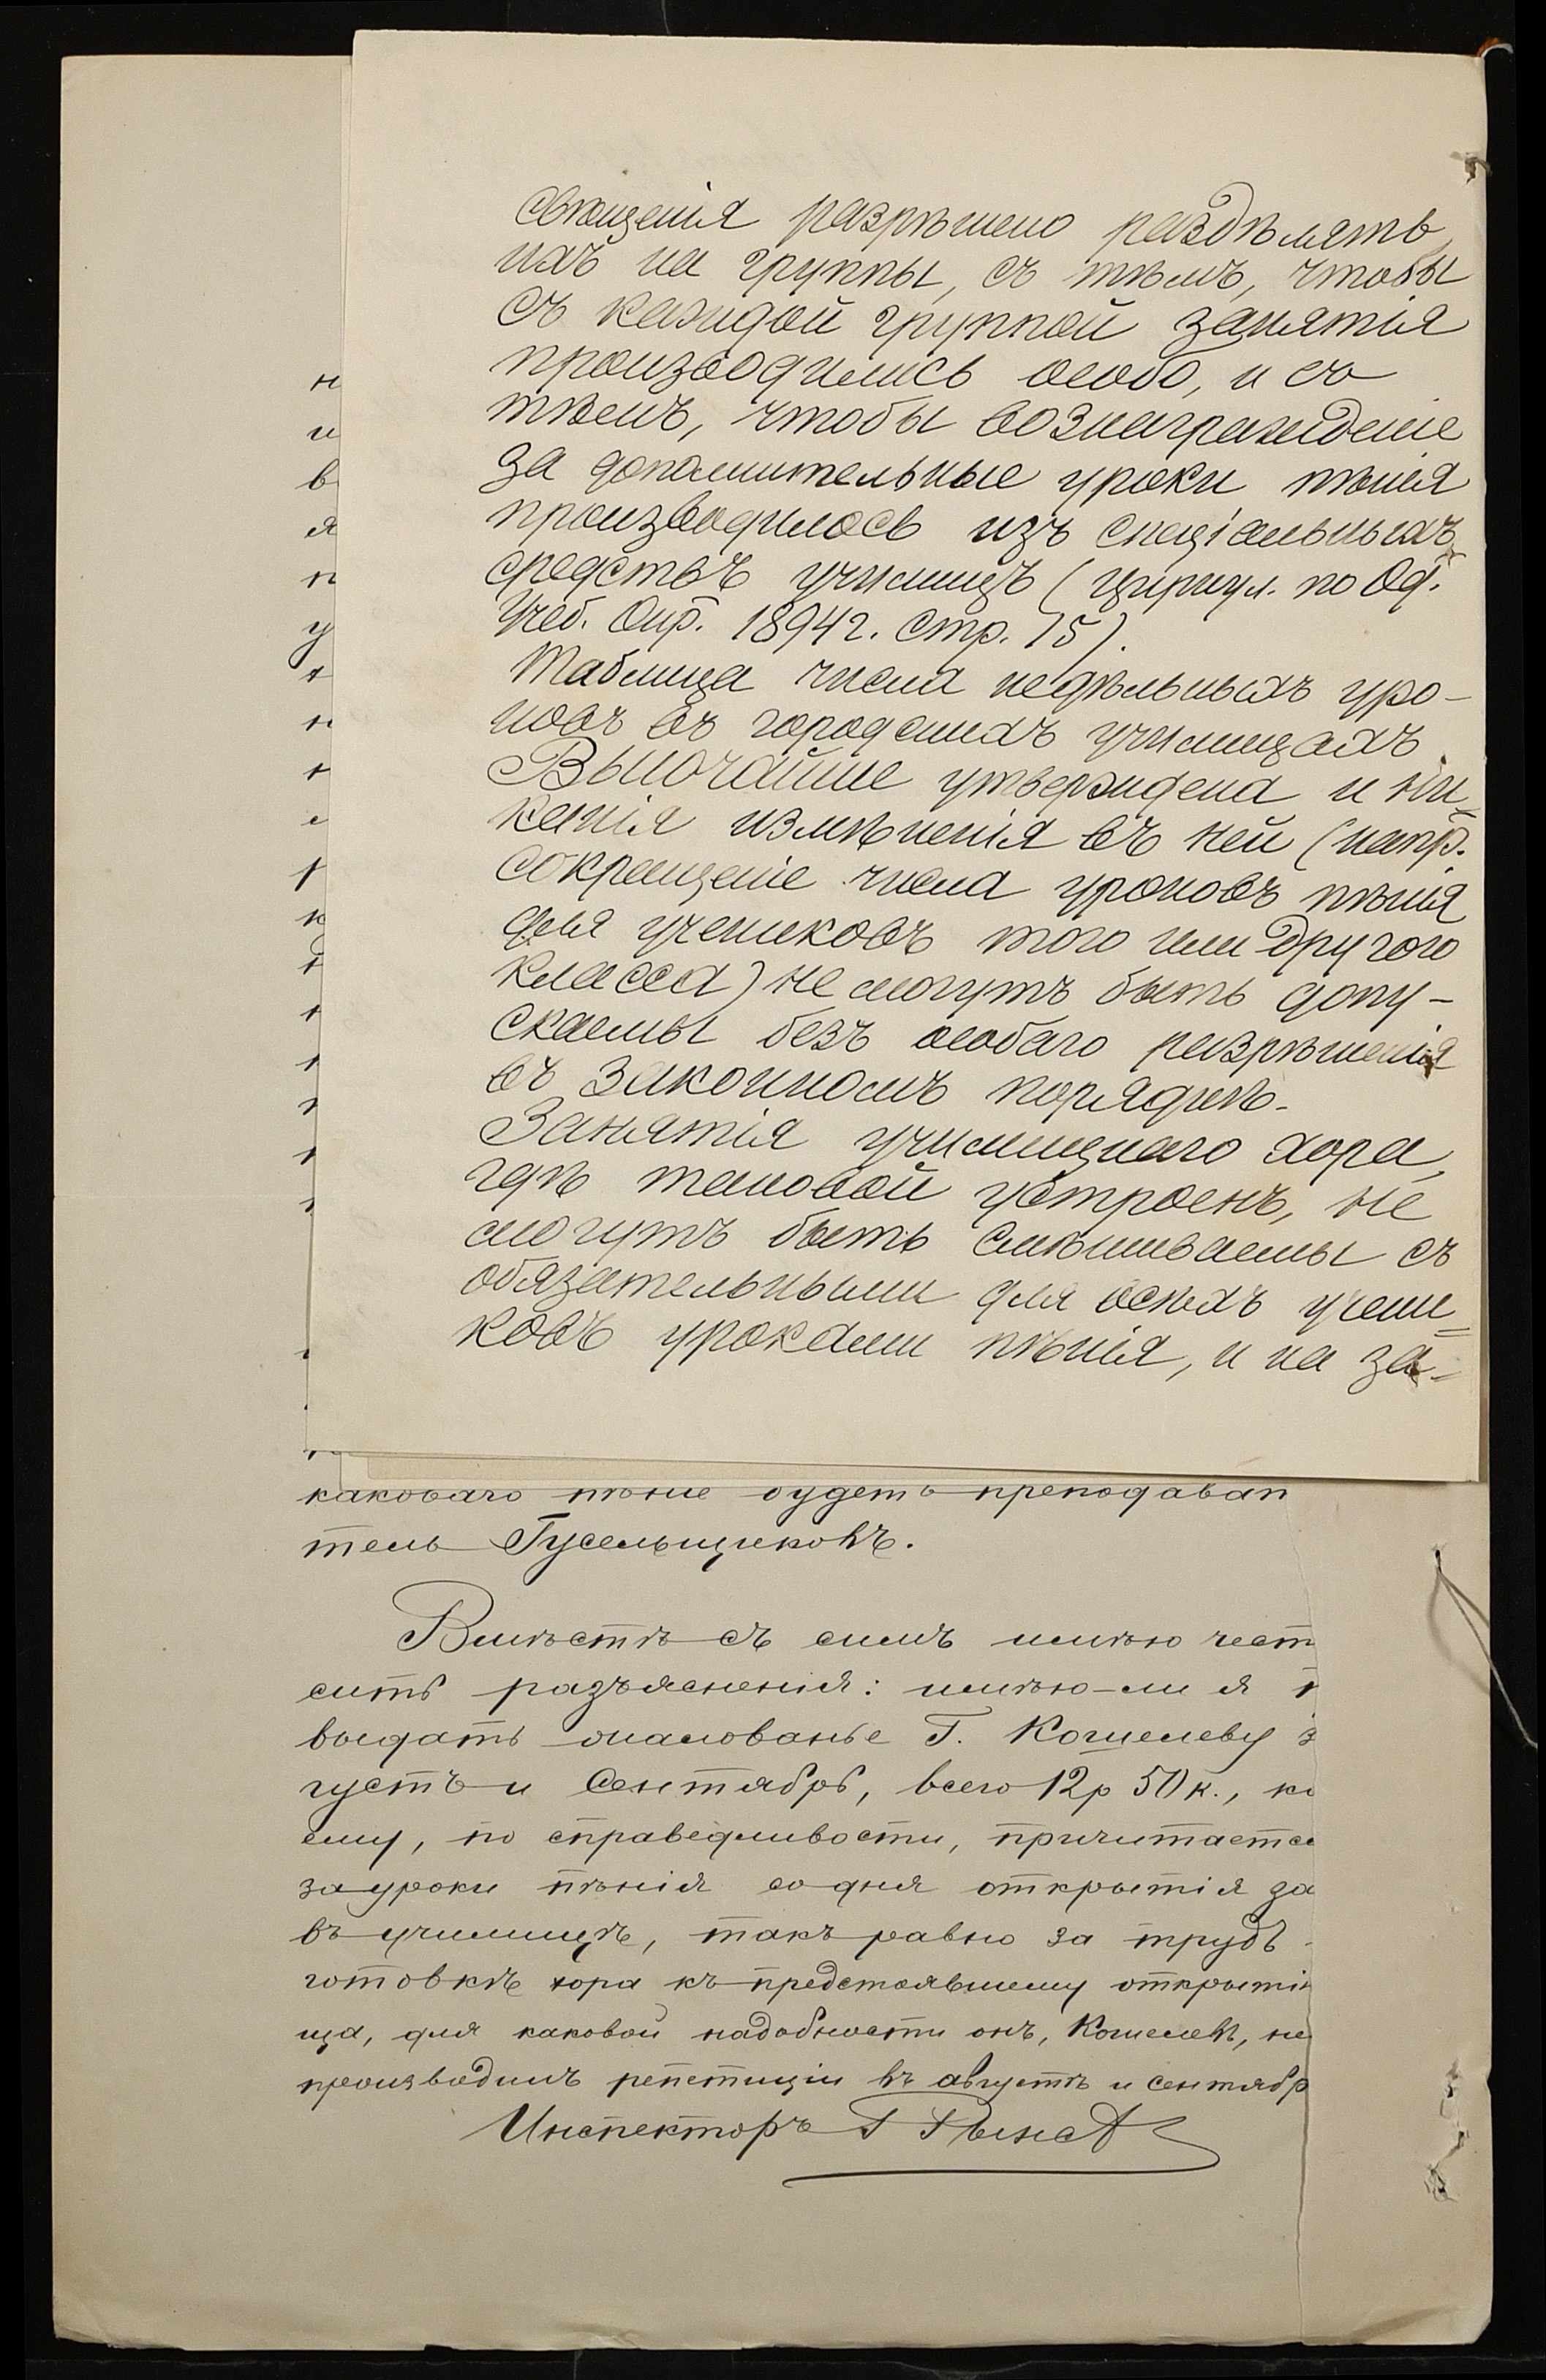 свѣщенія разрѣшено раздѣлять
ихъ на группы, съ тѣмъ, чтобы
съ каждой группой занятія
производились особо, и съ
тѣмъ, чтобы вознагражденіе
за дополнительные уроки пѣнія
производилось изъ спеціальныхъ
средствъ училищъ (циркул. по Од.
Учеб. Окр. 1894 г. стр. 75).
Таблица числа недѣльныхъ уро-
ковъ въ городскихъ училищахъ
Высочайше утверждена и ни-
какія измѣненія въ ней (напр.
сокращеніе числа уроковъ пѣнія
для учениковъ того или другого
класса) не могутъ быть допу-
скаемы безъ особаго разрѣшенія
въ законномъ порядкѣ.
Занятія училищнаго хора,
гдѣ таковой устроенъ, не
могутъ быть смѣшиваемы съ
обязательными для всѣхъ учени-
ковъ уроками пѣнія, и на за-
каковаго пѣніе будетъ преподават
тель Гусельщиковъ.
Вмѣстѣ съ симъ имѣю чест
сить разъясненія: имѣю-ли я
выдать жалованье Г. Кошелеву з
густъ и Сентябрь, всего 12 р 50 к., ко
ему, по справедливости, причитается
за уроки пѣнія со дня открытія за
въ училищѣ, такъ равно за трудъ
готовкѣ хора къ предстоявшему открытію
ща, для каковой надобности онъ, Кошелевъ, не
производилъ репетиціи въ августѣ и сентябр
Инспекторъ